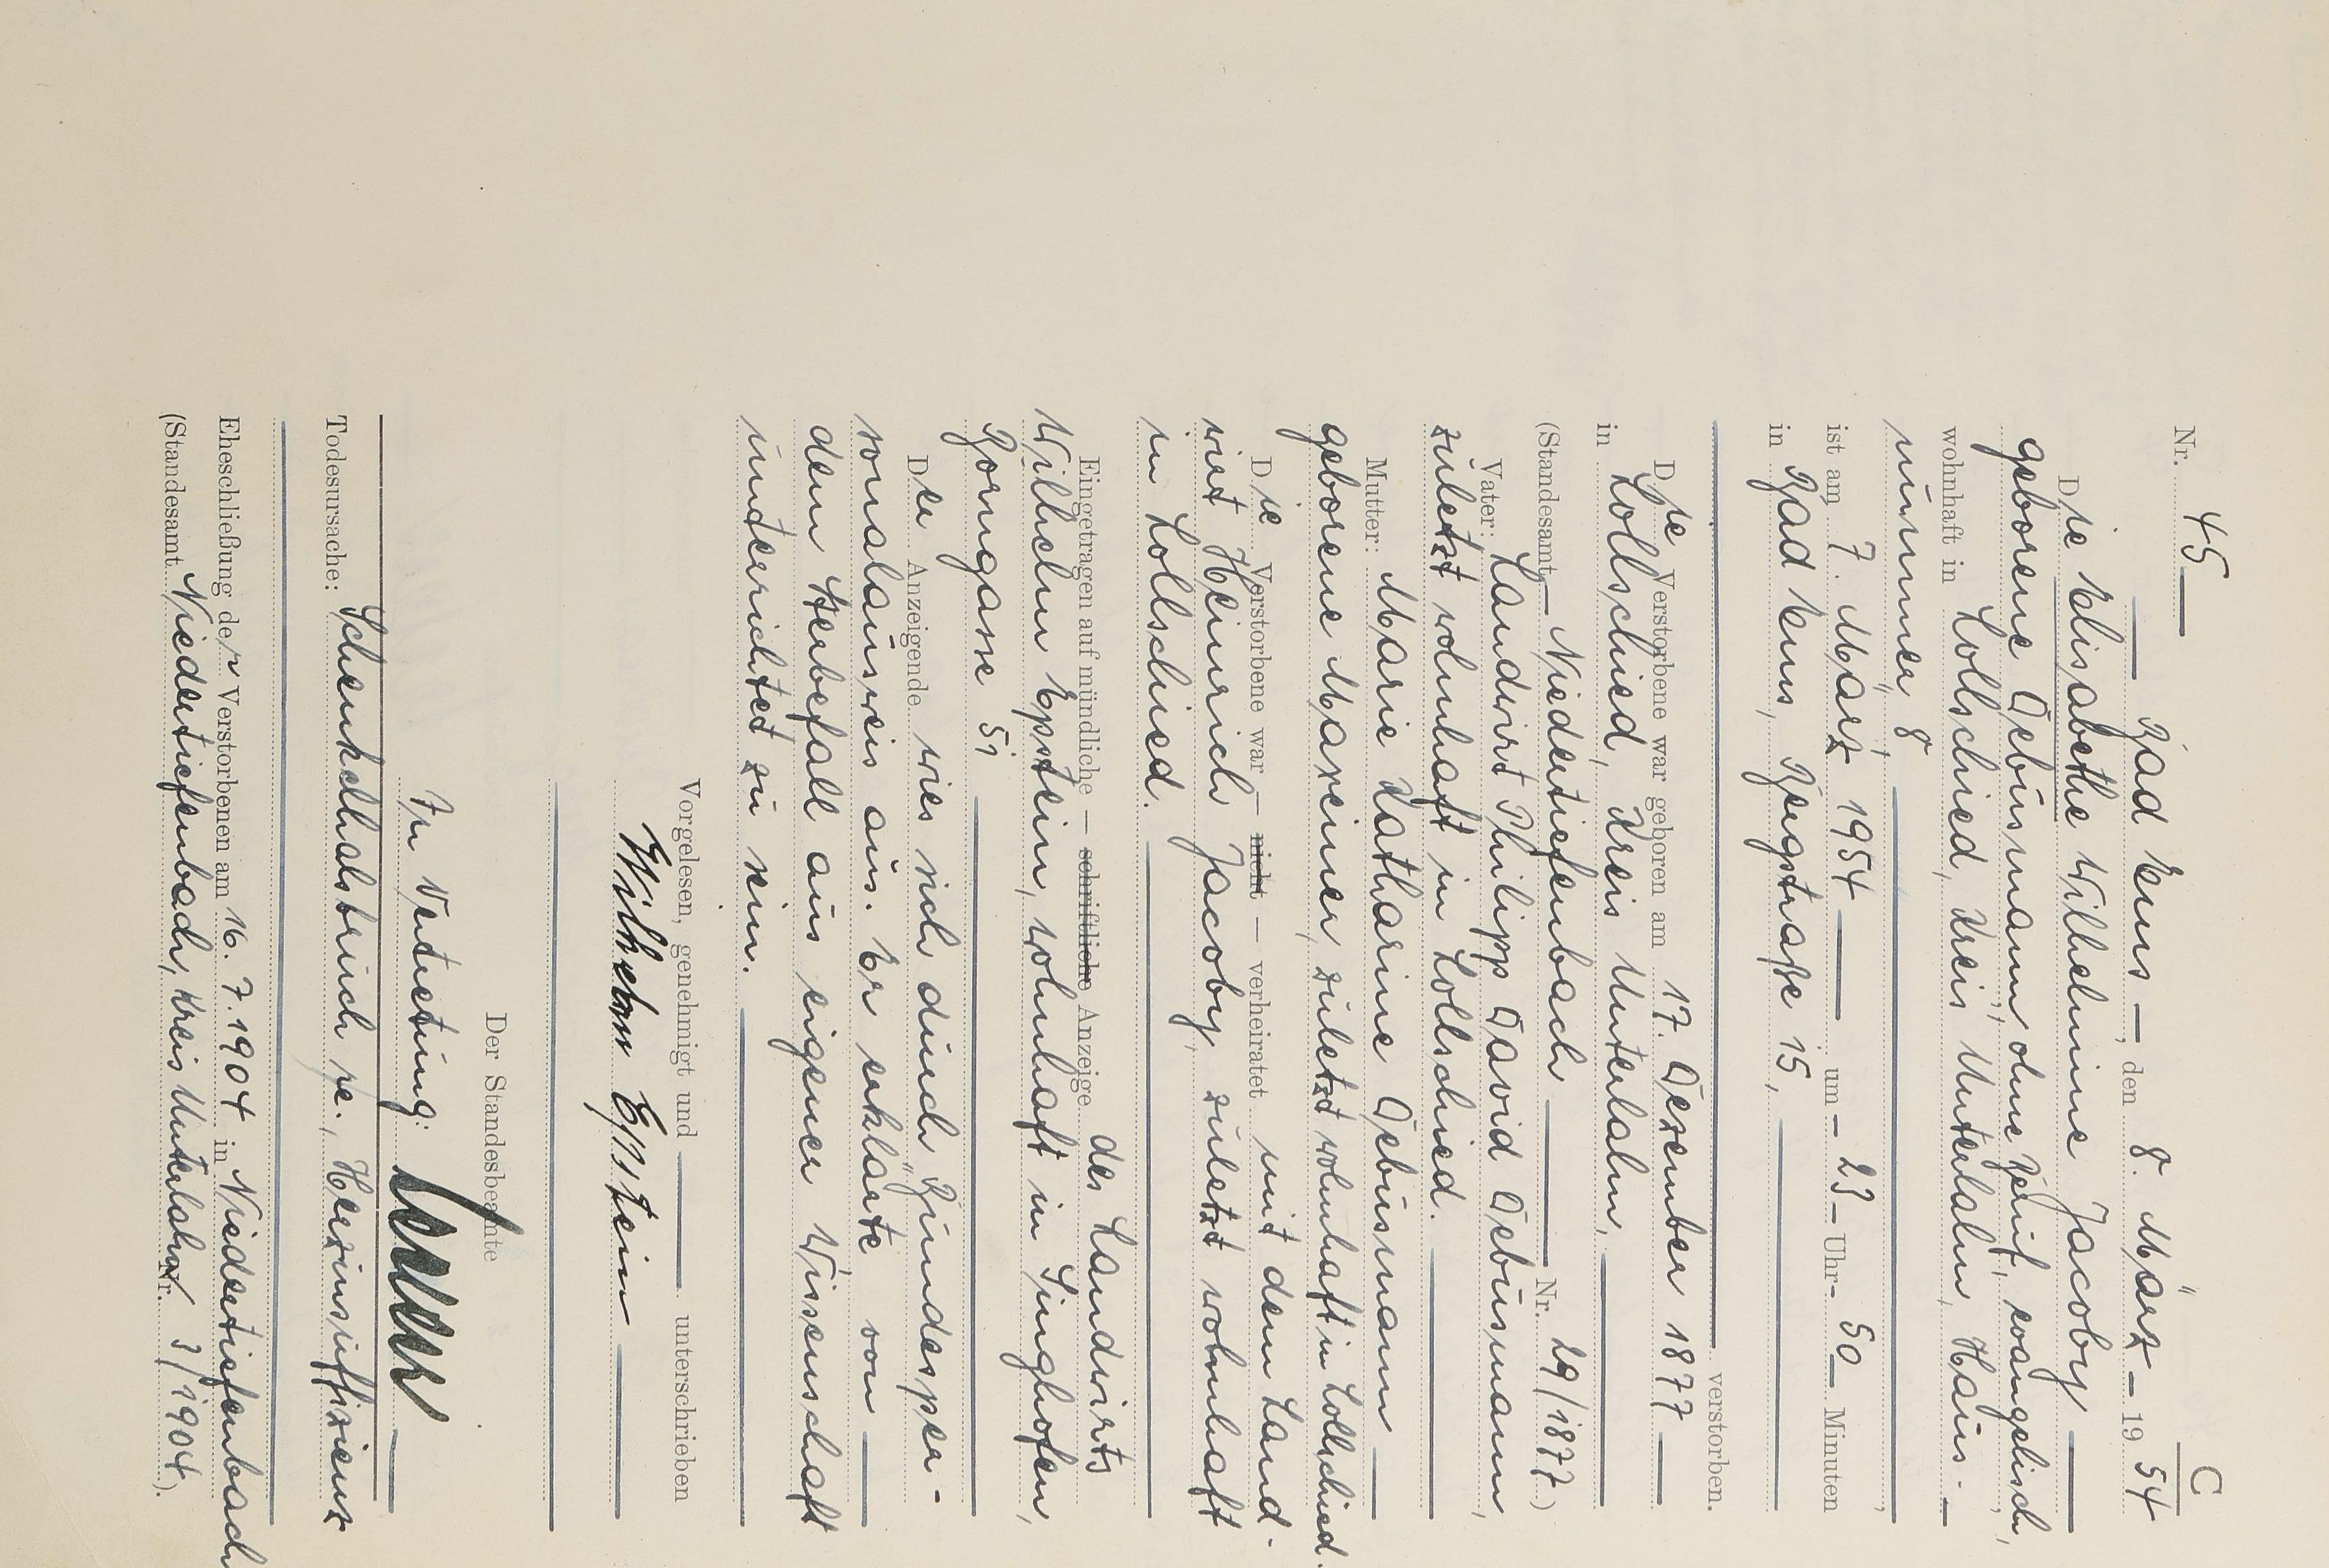 C
Nr. 45
Bad Ems, den 8. März 1954
Die Elisabethe Wilhelmine Jacoby
geborene Debusmann, ohne Beruf, evangelisch,
wohnhaft in Lollschied, Kreis Unterlahn, Haus-
nummer 8,
ist am 7. März 1954 um 23 Uhr 50 Minuten
in Bad Ems, Bergstraße 15,
verstorben.
Die Verstorbene war geboren am 17. Dezember 1877
in Lollschied, Kreis Unterlahn,
(Standesamt Niedertiefenbach Nr. 29/1877.)
Vater: Landwirt Philipp David Debusmann,
zuletzt wohnhaft in Lollschied.
Mutter: Marie Katharine Debusmann
geborene Maxeiner, zuletzt wohnhaft in Lollschied.
Die Verstorbene war — nicht — verheiratet mit dem Land-
wirt Heinrich Jacoby, zuletzt wohnhaft
in Lollschied.
Eingetragen auf mündliche — schriftliche Anzeige des Landwirts
Wilhelm Eppstein, wohnhaft in Singhofen,
Borngasse 5;
Der Anzeigende wies sich durch Bundesper-
sonalausweis aus. Er erklärte von
dem Sterbefall aus eigener Wissenschaft
unterrichtet zu sein.
Vorgelesen, genehmigt und unterschrieben
Wilhelm Eppstein
Der Standesbeamte
In Vertretung:
Todesursache: Schenkelhalsbruch re., Herzinsuffizienz
Eheschließung der Verstorbenen am 16.7.1904 in Niedertiefenbach
(Standesamt Niedertiefenbach, Kreis Unterlahn Nr. 3/1904).